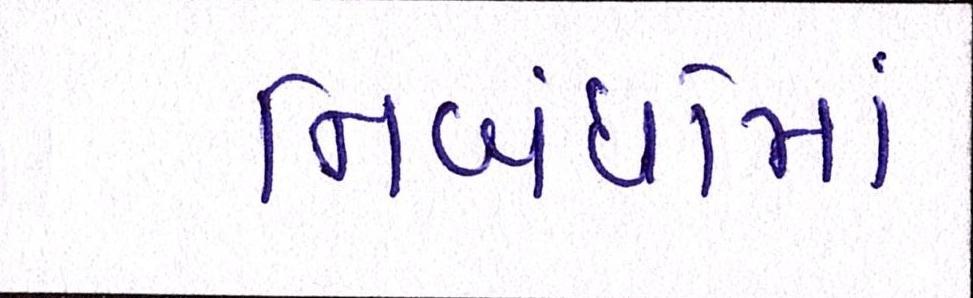 નિબંધોમાં